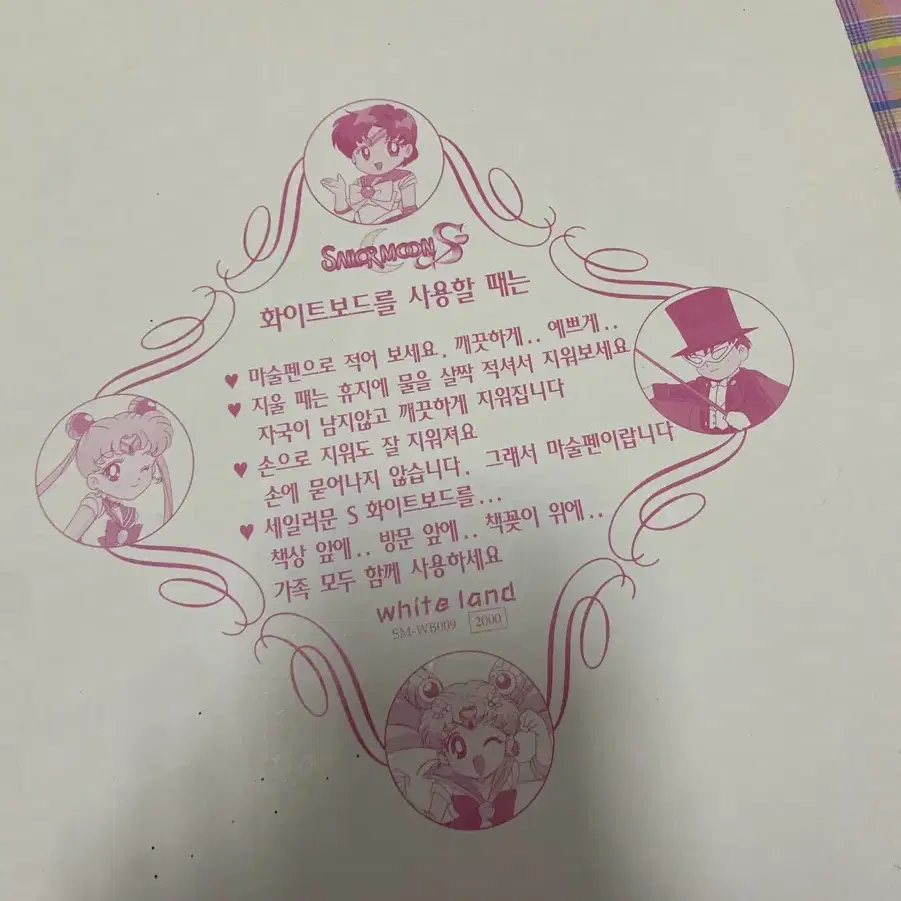 SAILORMOON S
화이트보드를 사용할 때는
♥ 마술펜으로 적어 보세요. 깨끗하게.. 예쁘게..
♥ 지울 때는 휴지에 물을 살짝 적셔서 지워보세요
자국이 남지않고 깨끗하게 지워집니다
♥ 손으로 지워도 잘 지워져요
손에 묻어나지 않습니다. 그래서 마술펜이랍니다
♥ 세일러문 S 화이트보드를...
책상 앞에.. 방문 앞에.. 책꽂이 위에..
가족 모두 함께 사용하세요
white land
SM-WB009 2000